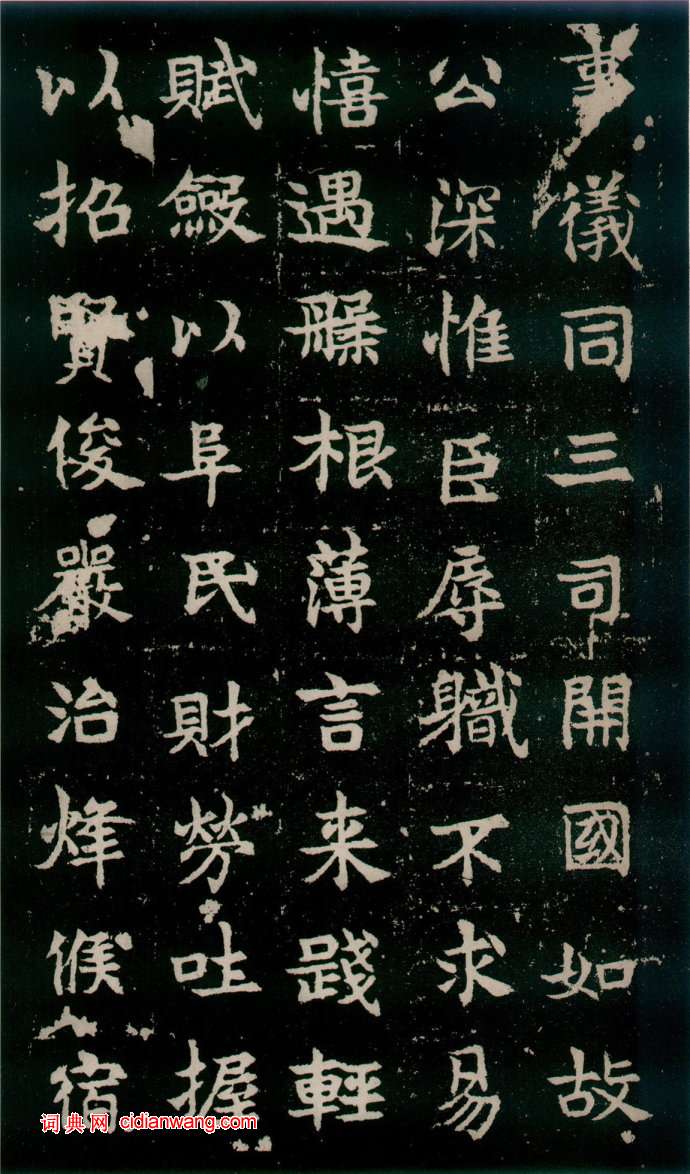 事儀同三司開國如故
公深惟臣辱軄不求易
憘遇槃根薄言来踐輕
賦斂以阜民財勞吐握
以招賢俊嚴治烽候宿
词典网 cidianwang.com